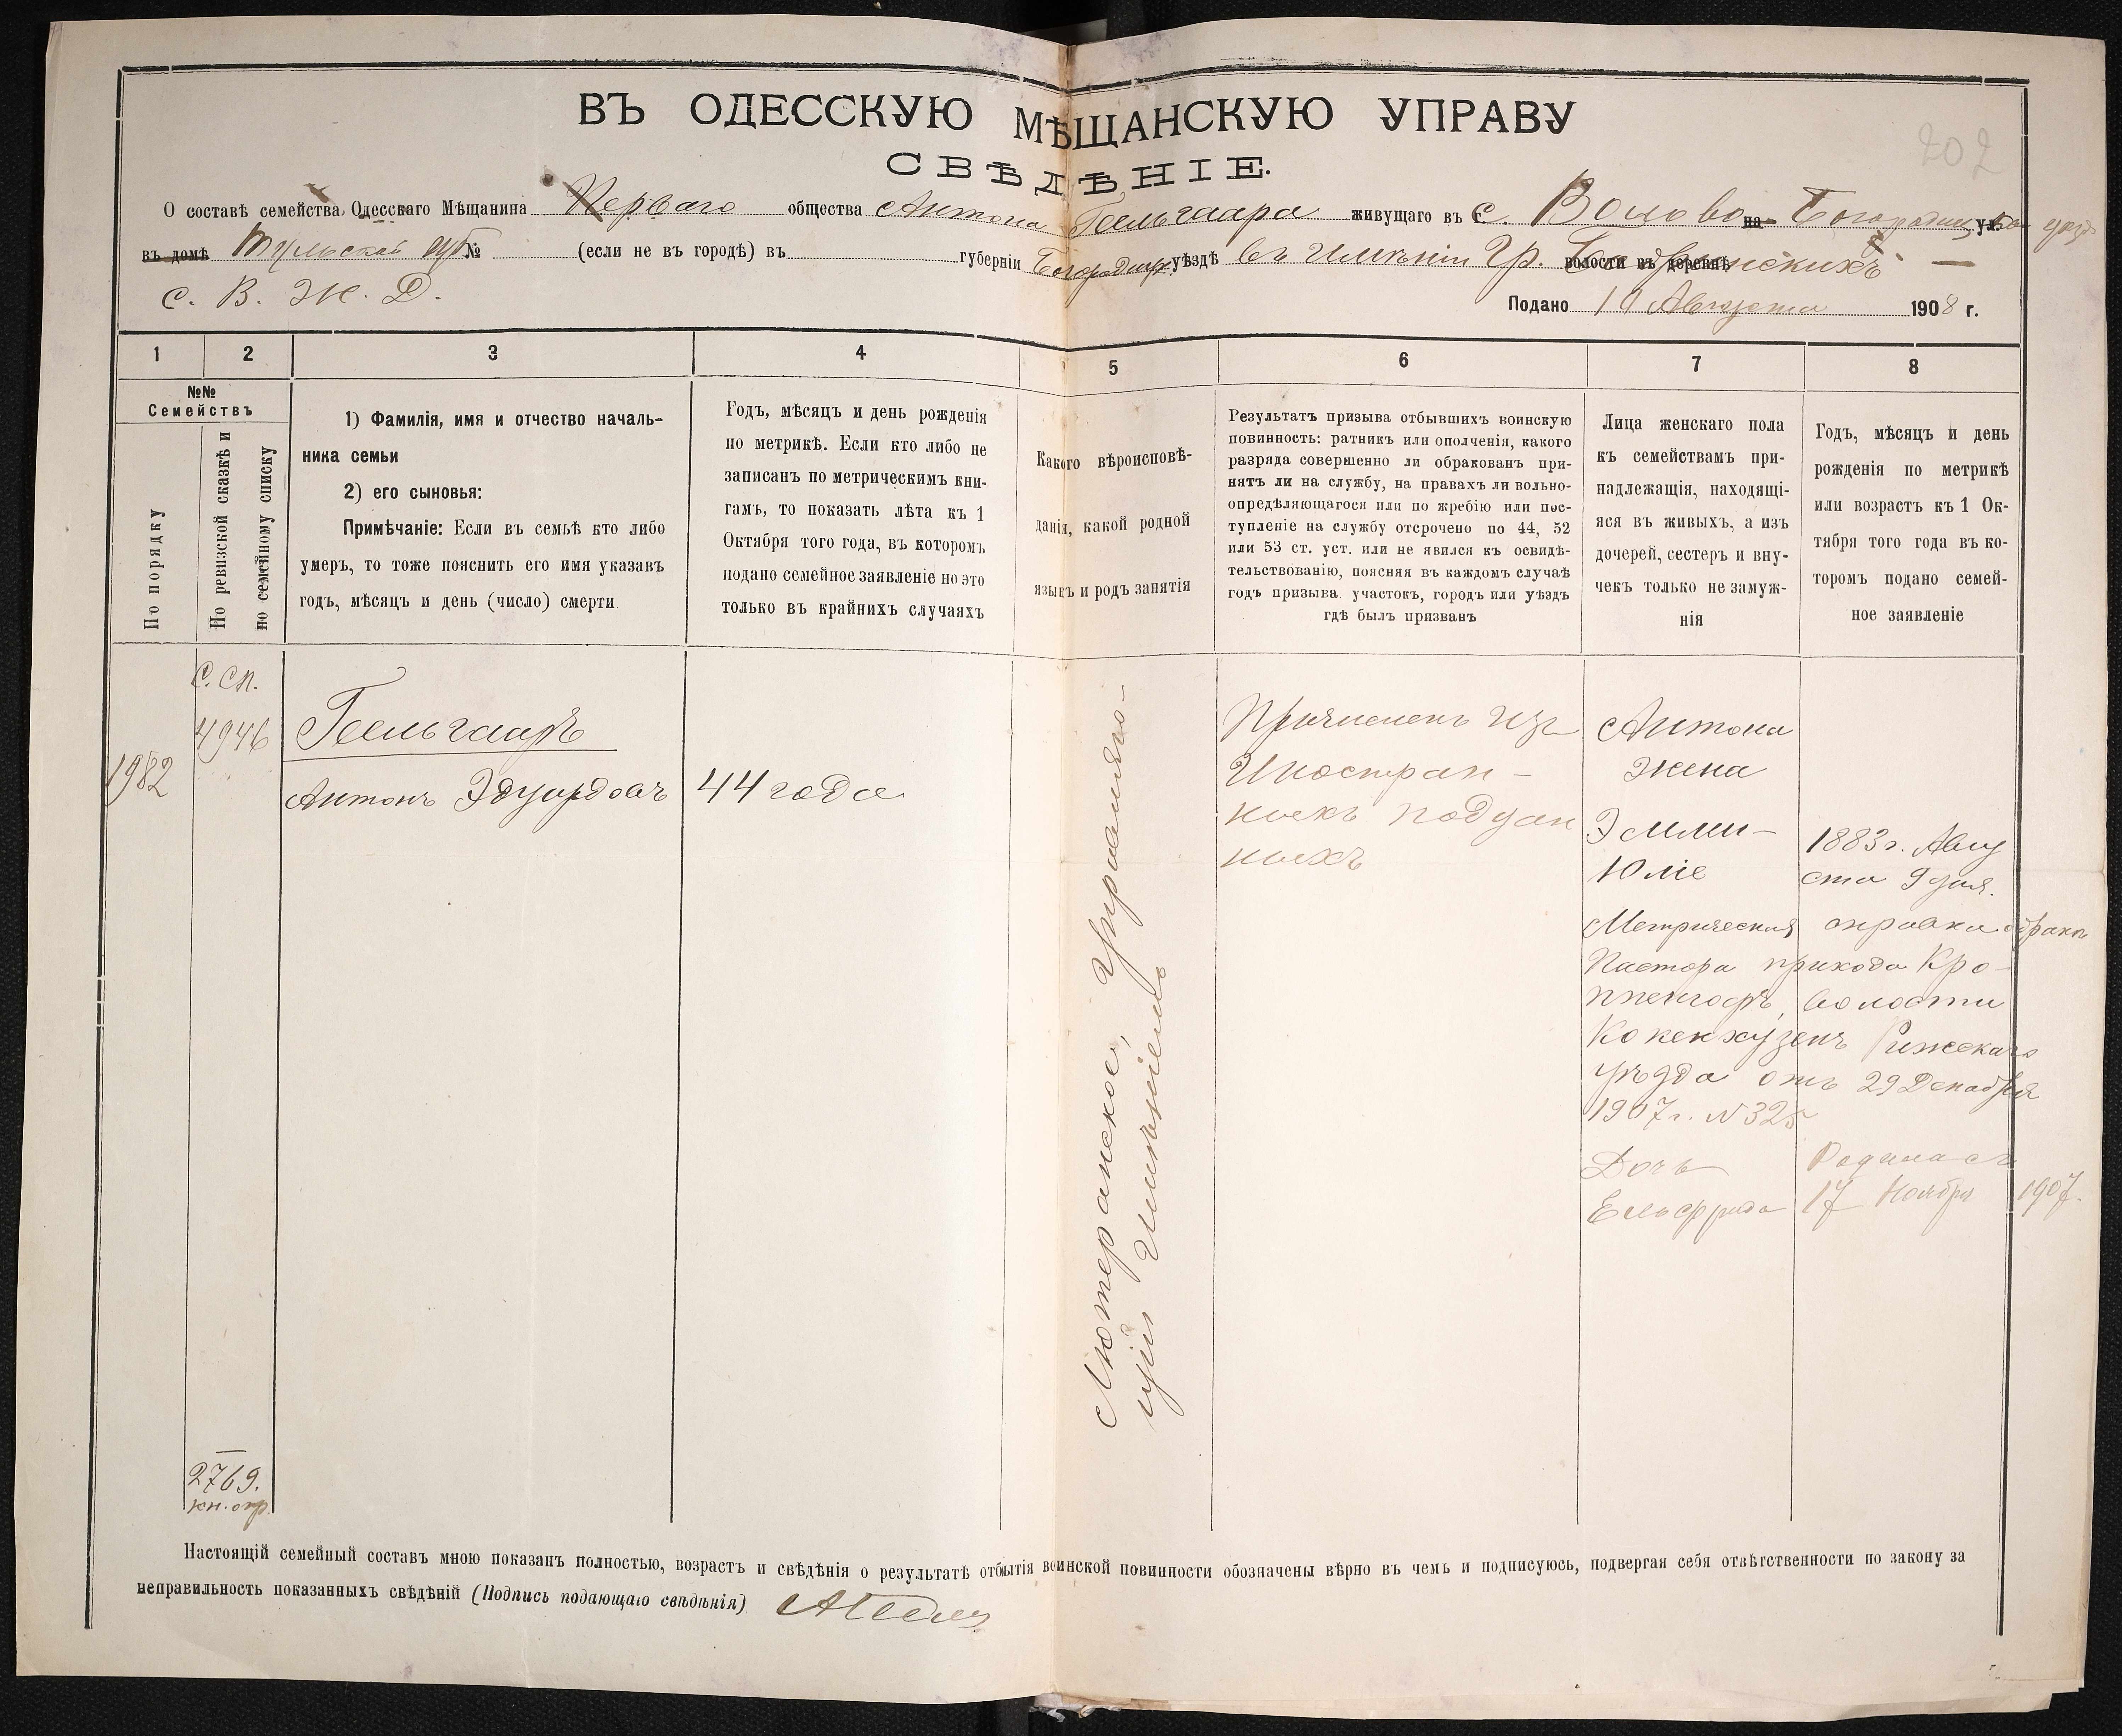 ВЪ ОДЕССКУЮ МѢЩАНСКУЮ УПРАВУ
202
СВѢДѢНІЕ.
О составѣ семейства Одесскаго Мѣщанина Перваго общества Антона Геельгаара живущаго въ с. Волово на Богородиц ул.
въ домѣ Тульской губ № (если не въ городѣ) въ губерніи Богородицк уѣздѣ въ имѣніи Гр. волости въ деревнѣ
С. В. Ж. Д.
Подано 11 Августа 1908 г.
1 2 3 4 5 6 7 8
№№
Семействъ
По порядку
По ревизской сказкѣ и
по семейному списку
1) Фамилія, имя и отчество началь-
ника семьи
2) его сыновья:
Примѣчаніе: Если въ семьѣ кто либо
умеръ, то тоже пояснить его имя указавъ
годъ, мѣсяцъ и день (число) смерти.
Годъ, мѣсяцъ и день рожденія
по метрикѣ. Если кто либо не
записанъ по метрическимъ кни-
гамъ, то показать лѣта къ 1
Октября того года, въ которомъ
подано семейное заявленіе но это
только въ крайнихъ случаяхъ
Какого вѣроисповѣ-
данія, какой родной
языкъ и родъ занятія
Результатъ призыва отбывшихъ воинскую
повинность: ратникъ или ополченія, какого
разряда совершенно ли обракованъ при-
нятъ ли на службу, на правахъ ли вольно-
опредѣляющагося или по жребію или пос-
тупленіе на службу отсрочено по 44, 52
или 53 ст. уст. или не явился къ освидѣ-
тельствованію, поясняя въ каждомъ случаѣ
годъ призыва. участокъ, городъ или уѣздъ
гдѣ былъ призванъ
Лица женскаго пола
къ семействамъ при-
надлежащія, находящі-
яся въ живыхъ, а изъ
дочерей, сестеръ и вну-
чекъ только не замуж-
нія
Годъ, мѣсяцъ и день
рожденія по метрикѣ
или возрастъ къ 1 Ок-
тября того года въ ко-
торомъ подано семей-
ное заявленіе
1982
С. сп.
4946
Геельгааръ
Антонъ Эдуардовъ
44 года
Лютеранское, Управляю-
щій Имѣніемъ
Причисленъ изъ
Иностран-
ныхъ поддан
ныхъ
Антона
жена
Эмми-
Юліе
1883 г. Авгу
ста 9 дня.
Метрическая справка о бракѣ
Пастора прихода Кро-
ппенгофъ, волости
Кокенхузенъ Рижскаго
уѣзда отъ 29 Декабря
1907 г. N 325
Дочь
Ельфрида
Родилась
17 Ноября 1907.
2769.
кн. отр.
Настоящій семейный составъ мною показанъ полностью, возрастъ и свѣдѣнія о результатѣ отбытія воинской повинности обозначены вѣрно въ чемъ и подписуюсь, подвергая себя отвѣтственности по закону за
неправильность показанныхъ свѣдѣній (Подпись подающаго свѣдѣнія)